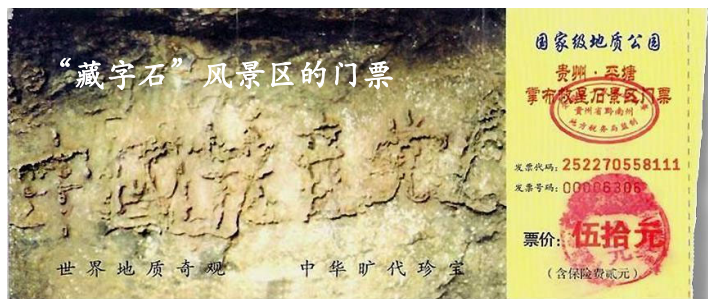 “藏字石”风景区的门票
中国共产党
世界地质奇观 中华旷代珍宝
国家级地质公园
贵州·平塘
掌布救星石景区门票
贵州省黔南州
地方税务局监制
发票代码：252270558111
发票号码：00006306
票价：伍拾元
（含保险费贰元）